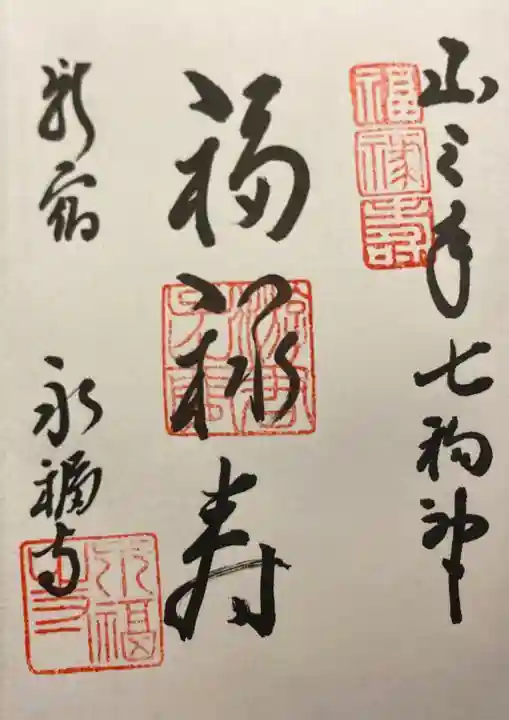 山之手七福神
福禄寿
福禄寿
新宿 永福寺
永福寺